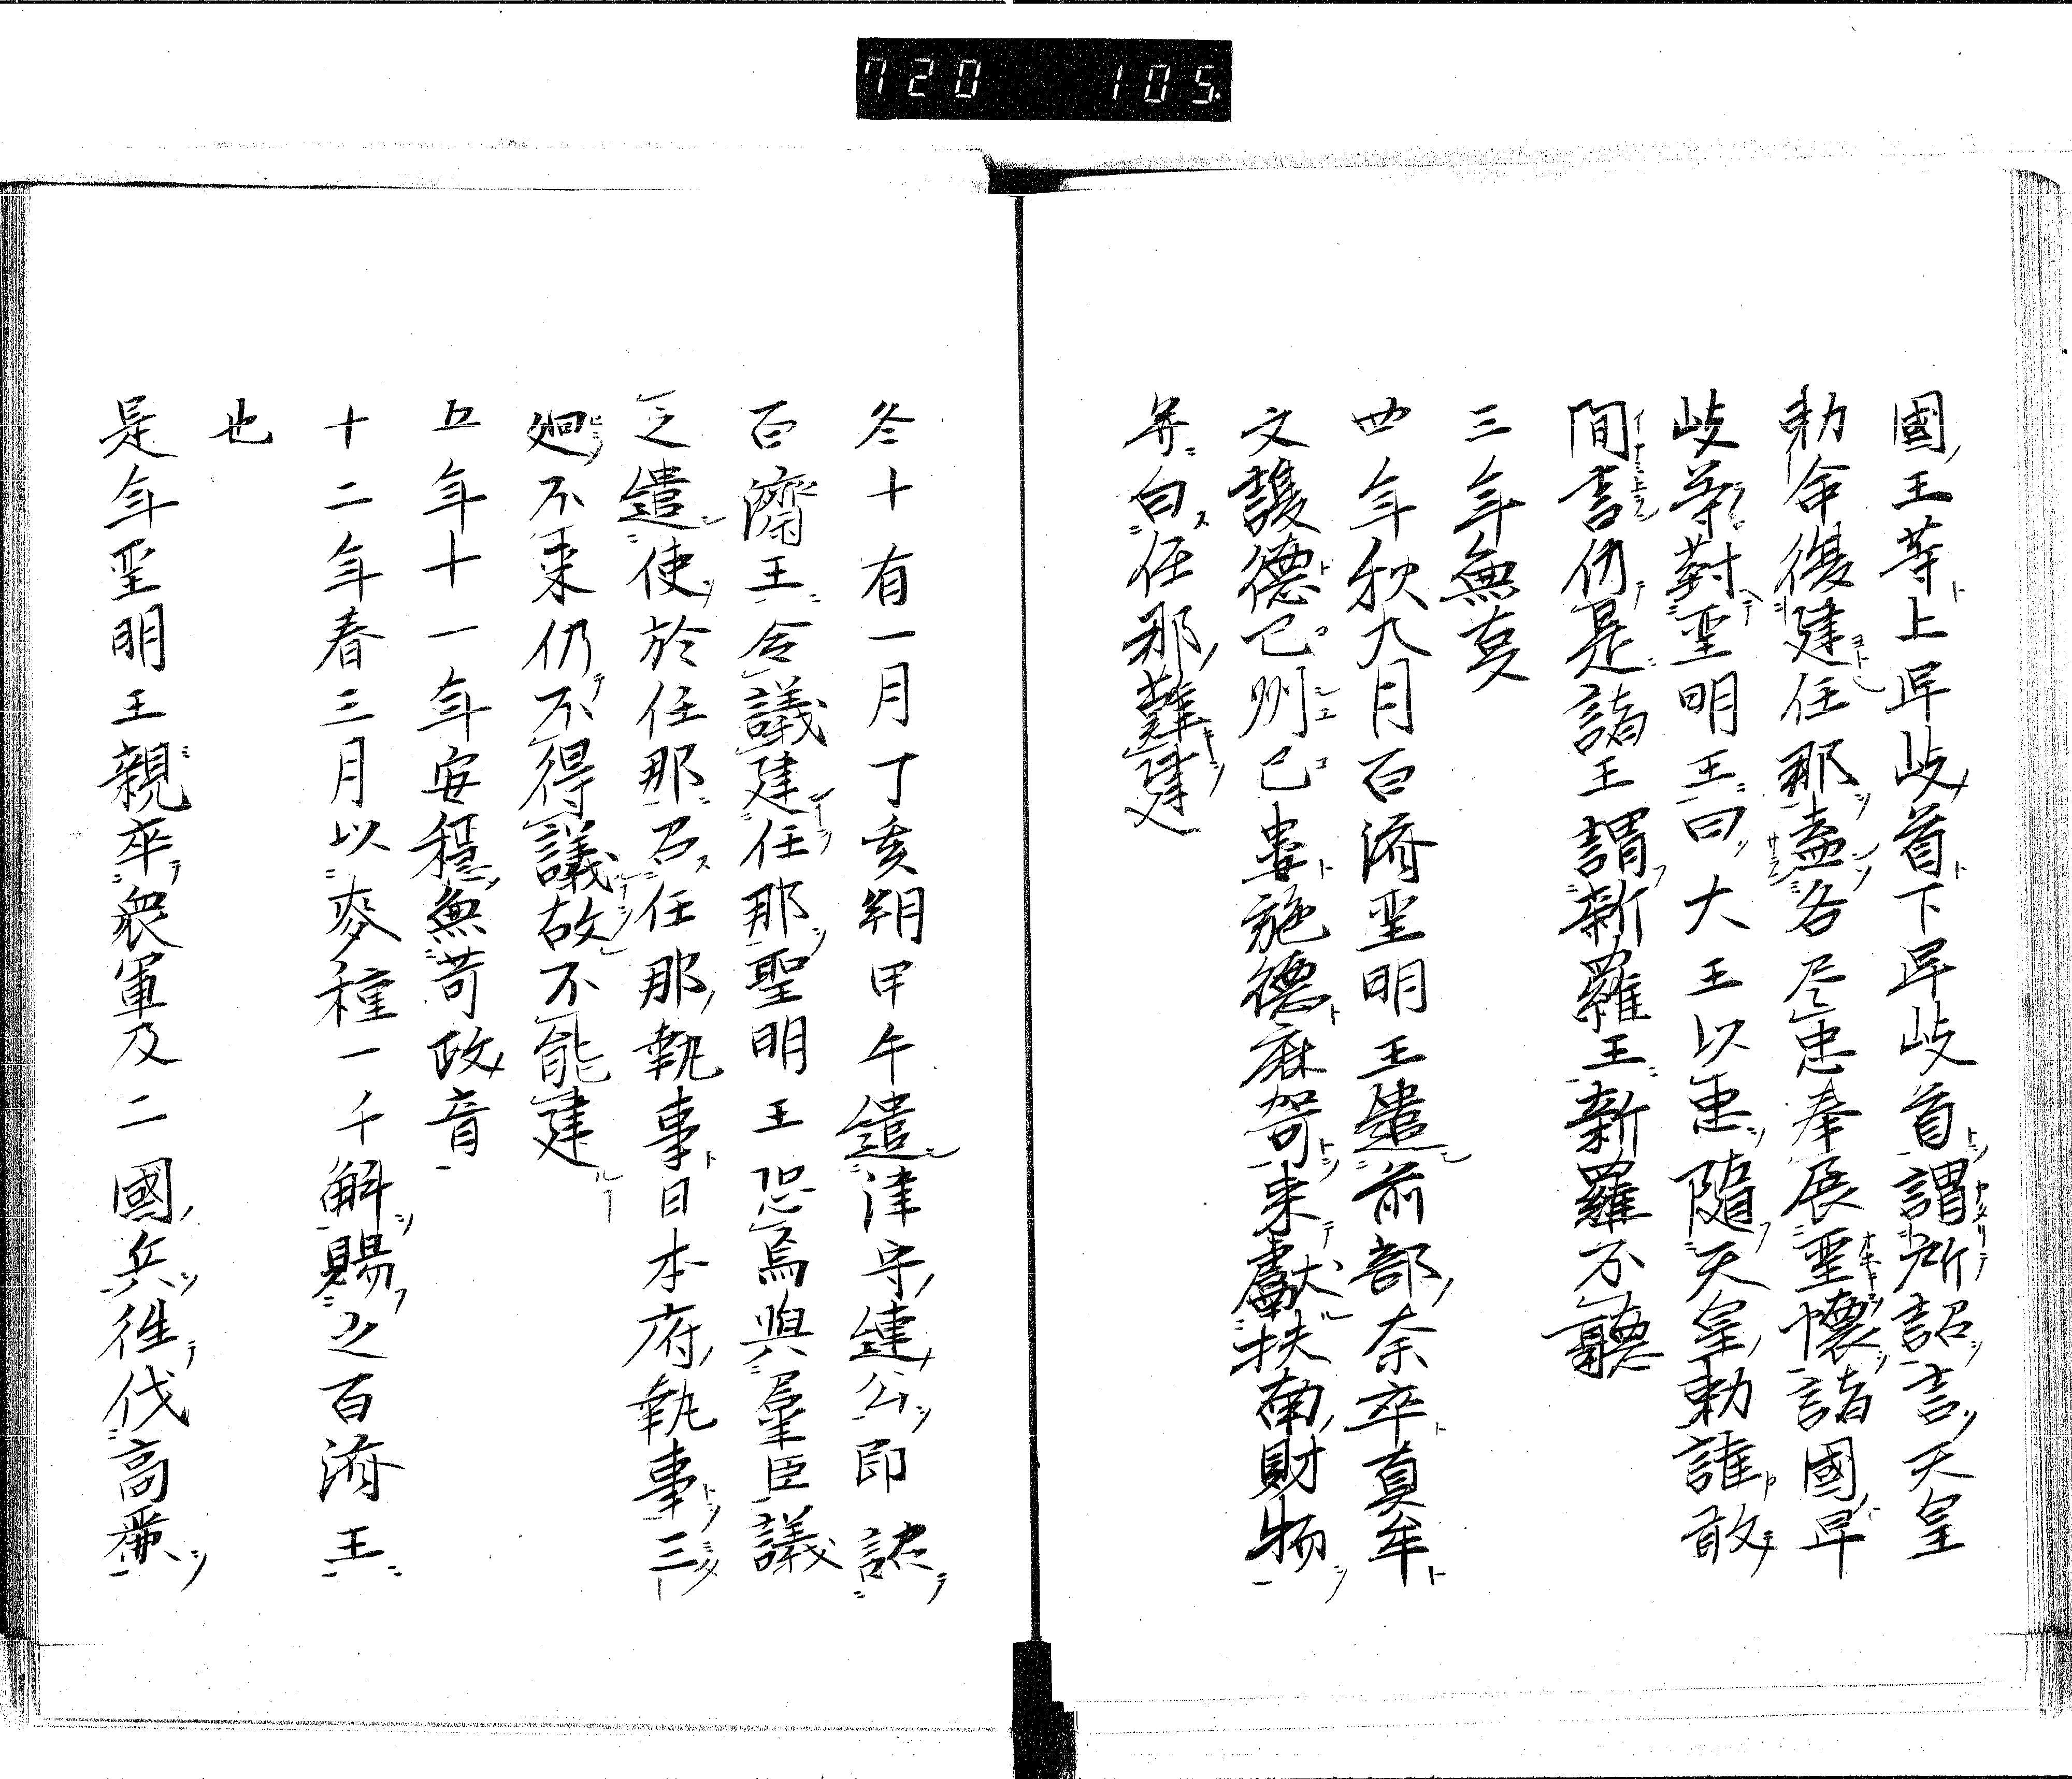 720 105
國ノ王等ト上旱岐ノ首ト下旱岐首トシ謂所詔シ言ノ天皇
勅命復建任那盍各尽忠奉展聖懐諸國旱
岐等對聖明王曰大王以忠隨天皇勅誰敢
間言仍是諸王謂新羅王新羅不聽
三年無事
四年秋九月百済聖明王遣前部奈卒真牟
文護德己州己婁施德麻哿来獻扶南財物
并白任那難建
冬十有一月丁亥朔甲午遣津守連公即詔
百濟王令議建任那聖明王恐焉與羣臣議
之遣使於任那召任那執事日本府執事三
廻不来仍不得議故不能建
五年十一年安穏無苛政音
十二年春三月以麥種一千斛賜之百済王
也
是年聖明王親卒衆軍及二國兵徃伐高麗